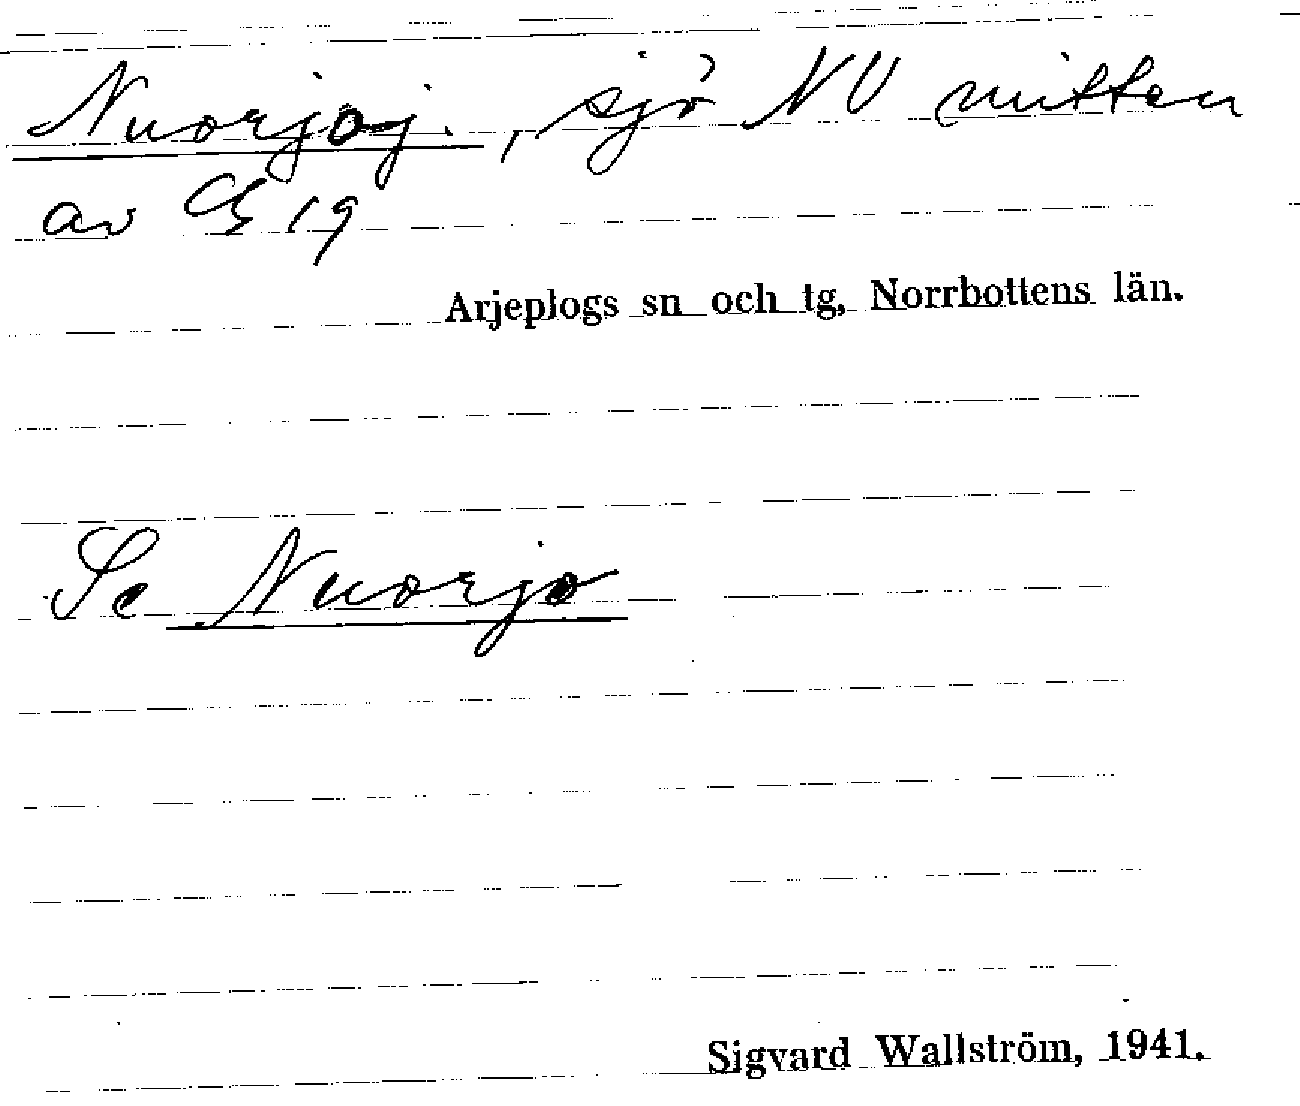 Nuorjoj. , sjö NV mitten
av G 19
Arjeplogs sn och tg, Norrbottens län.
Se Nuorjo
Sigvard Wallström, 1941.